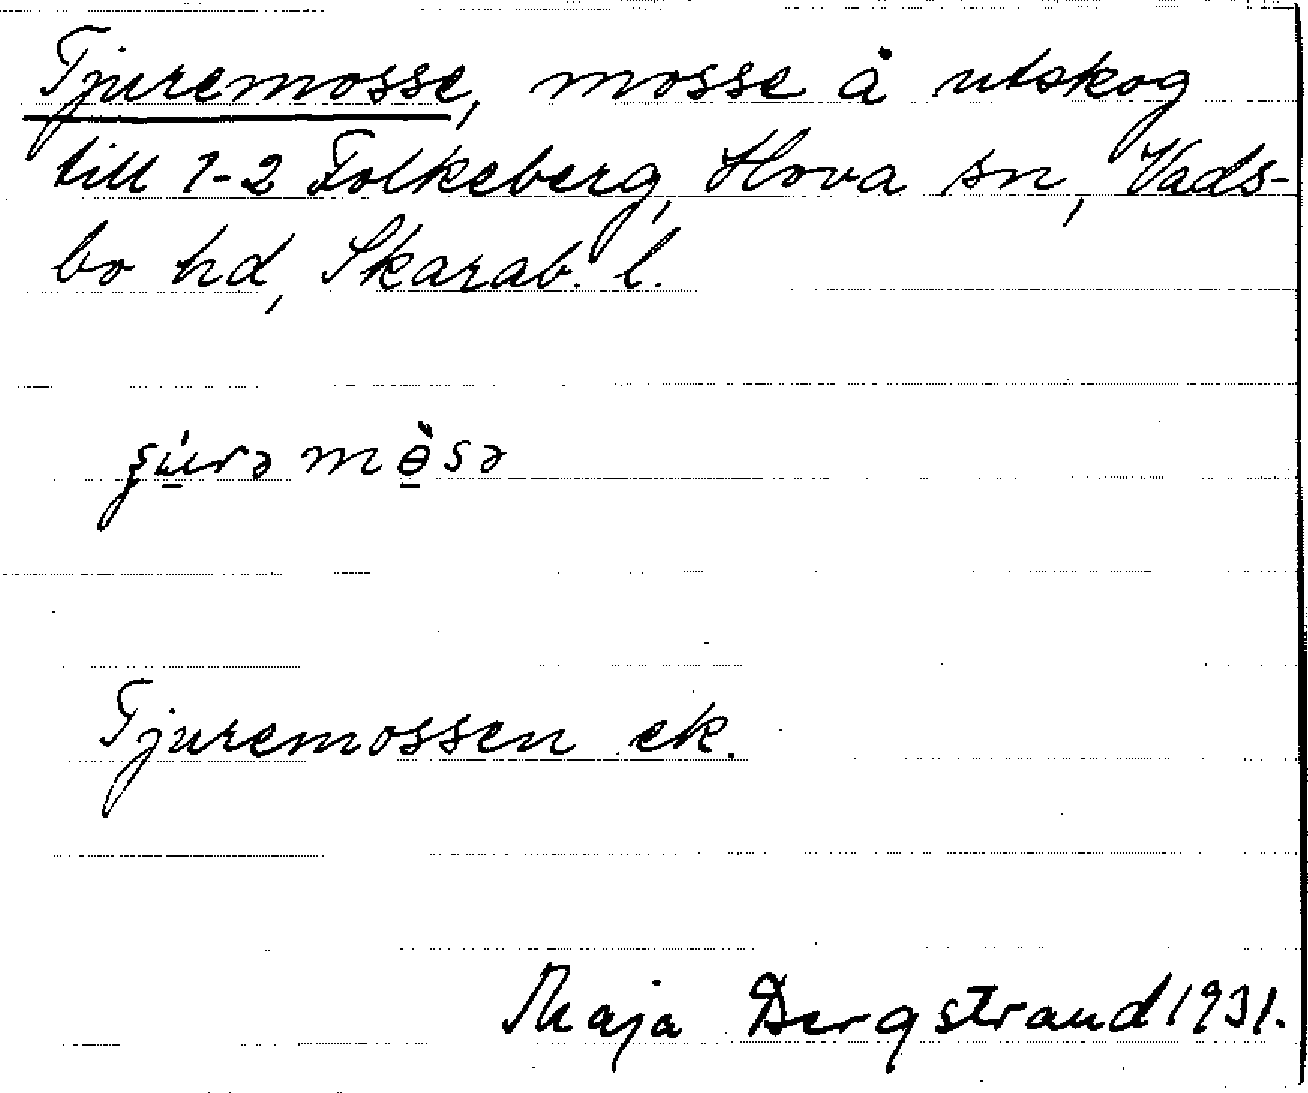 Tjuremosse, mosse å utskog
till 1-2 Folkeberg, Hova sn, Vads-
bo hd, Skarab. l.
Tjuremossen ek.
Maja Bergstrand 1931.